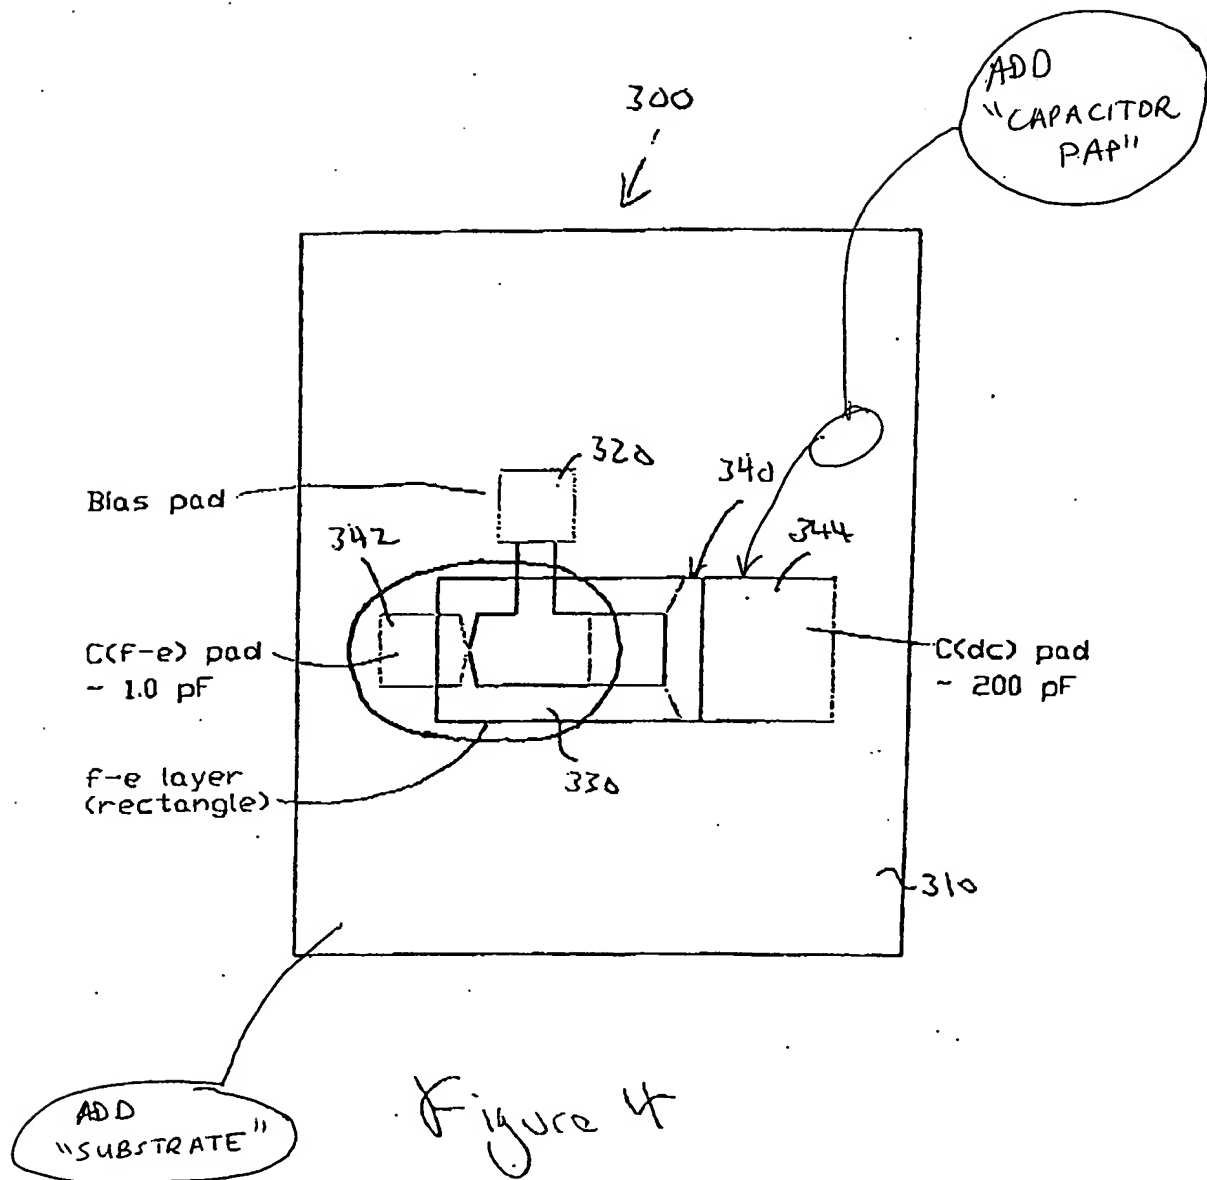 300
ADD
"CAPACITOR
PAP"
320
340
Bias pad
342
344
C(f-e) pad
~ 1.0 pF
C(dc) pad
~ 200 pF
f-e layer
(rectangle)
330
310
ADD
"SUBSTRATE"
Figure 4